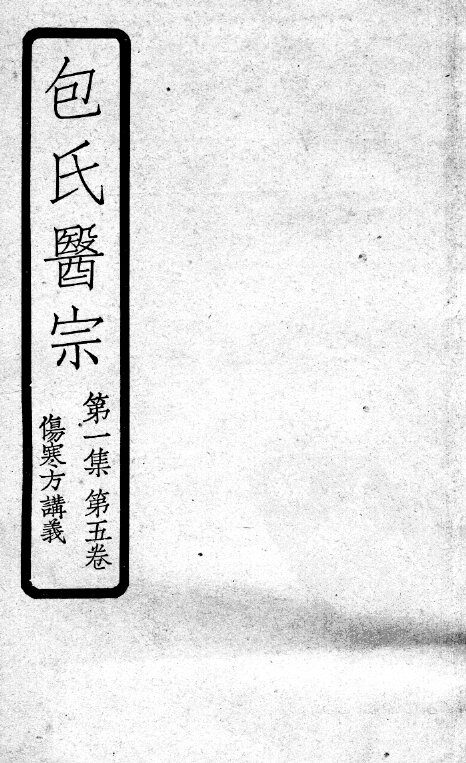 包氏醫宗
第一集 第五卷
傷寒方講義